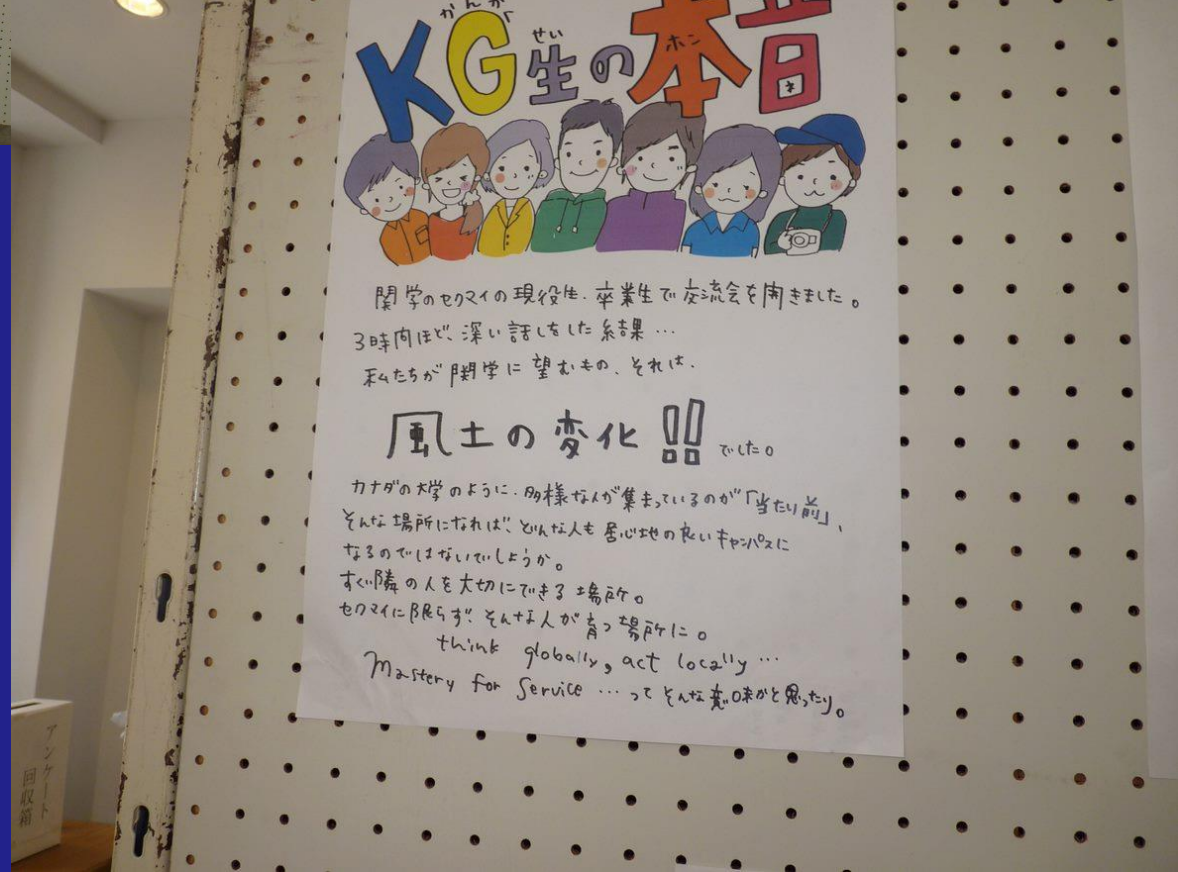 かんがく
KG生の本音
せい
ホン
ネ
関学のセクマイの現役生・卒業生で交流会を開きました。
3時間ほど、深い話しをした結果…
私たちが関学に望むもの、それは、
風土の変化!!でした。
カナダの大学のように、多様な人が集まっているのが「当たり前」、
そんな場所になれば、どんな人も居心地の良いキャンパスに
なるのではないでしょうか。
すぐ隣の人を大切にできる場所。
セクマイに限らず、そんな人が育つ場所に。
think globally, act locally…
Mastery for Service…ってそんな意味かと思ったり。
アンケート
回収箱